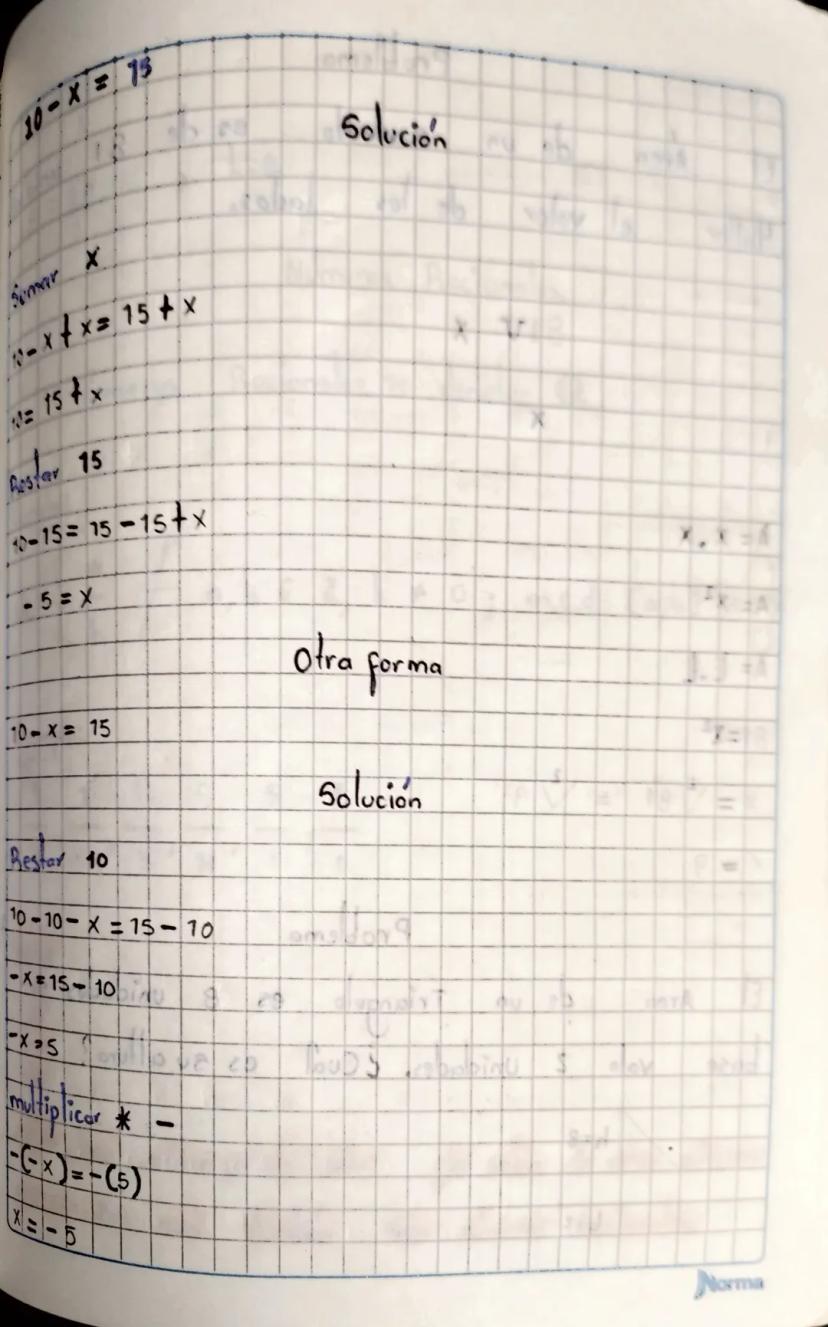 10 - x = 15
Solución
Sumar x
10 - x + x = 15 + x
10 = 15 + x
Restar 15
10 - 15 = 15 - 15 + x
- 5 = x
Otra forma
10 - x = 15
Solución
Restar 10
10 - 10 - x = 15 - 10
- x = 15 - 10
- x = 5
multiplicar * -
-(-x) = -(5)
x = - 5
Norma